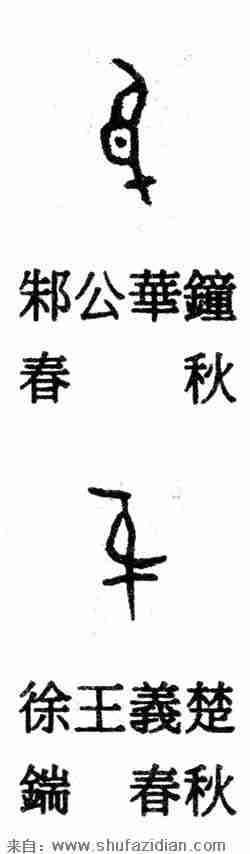 邾公華鐘
春秋
徐王義楚
鍴 春秋
来自：www.shufazidian.com